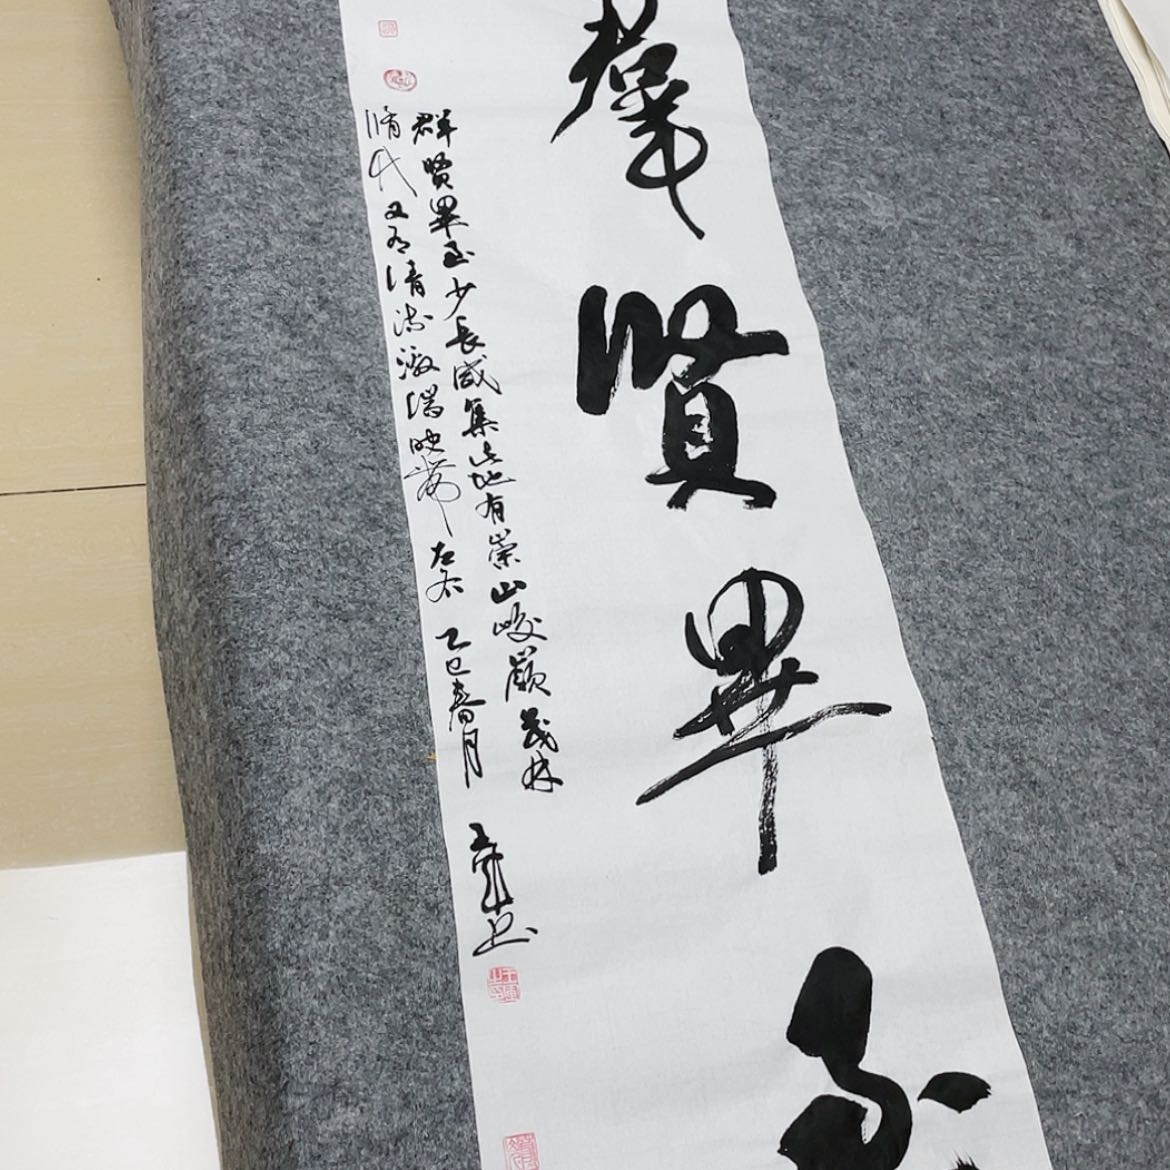 群賢畢至
群賢畢至少長咸集此地有崇山峻嶺茂林
脩竹又有清流激湍映帶左右 乙巳春月